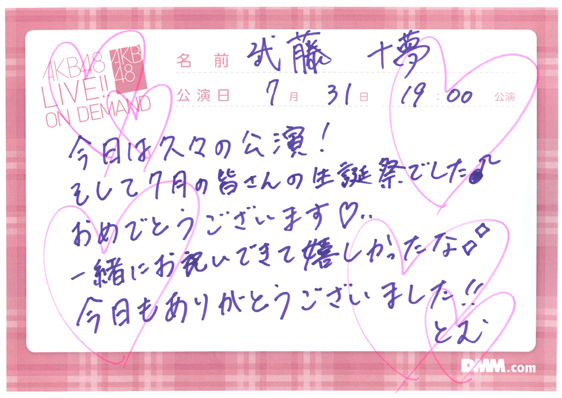 AKB48
LIVE!!
ON DEMAND
AKB
48
名前 武藤 十夢
公演日 7月 31日 19:00 公演
今日は久々の公演!
そして7月の皆さんの生誕祭でした♪
おめでとうございます♡..
一緒にお祝いできて嬉しかったな
今日もありがとうございました!!
とむ
DMM.com